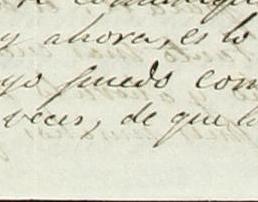 y ahora, es lo
yo puedo com
veces, de que l